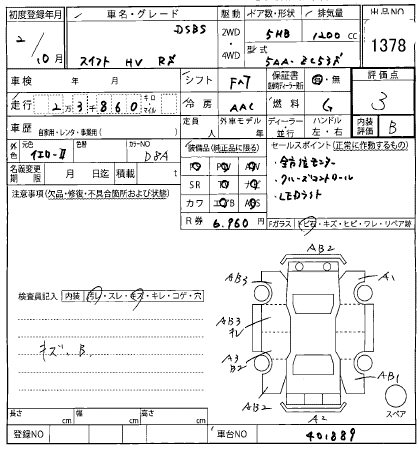 初度登録年月 車名・グレード 駆動 ドア数・形状 排気量 出品NO
DSBS 2WD 5HB 1200 cc
2/10月 スイフト HV RS ・4WD 型式 5AA-ZC53S 1378
車検 年 月 シフト FA7 保証書 有・無 評価点
走行 2万3千860 キロ・マイル 冷房 AAC 燃料 G 3
車歴 自家用・レンタ・事業用( ) 定員 人 外車モデル 年 ディーラー・並行 ハンドル 左・右 内装評価 B
外色 元色 イエロー-Ⅱ 色替 カラーNO D8A 装備品(純正品に限る) セールスポイント(正常に作動するもの)
名義変更期限 月 日迄 積載 t PS PW AW ・全方位モニター
注意事項(欠品・修復・不具合箇所および状態) SR TV ナビ ・クルーズコントロール
カワ エアB ABS ・LEDライト
R券 6,960 Fガラス トビ石・キズ・ヒビ・ワレ・リペア跡
AB2
AB3 A1
検査員記入 内装 汚レ・スレ・キズ・キレ・コゲ・穴
AB3
キズ、B
A3
B2
AB1
AB2 A2 スペア
長さ cm 幅 cm 高さ cm
登録NO 車台NO 401889